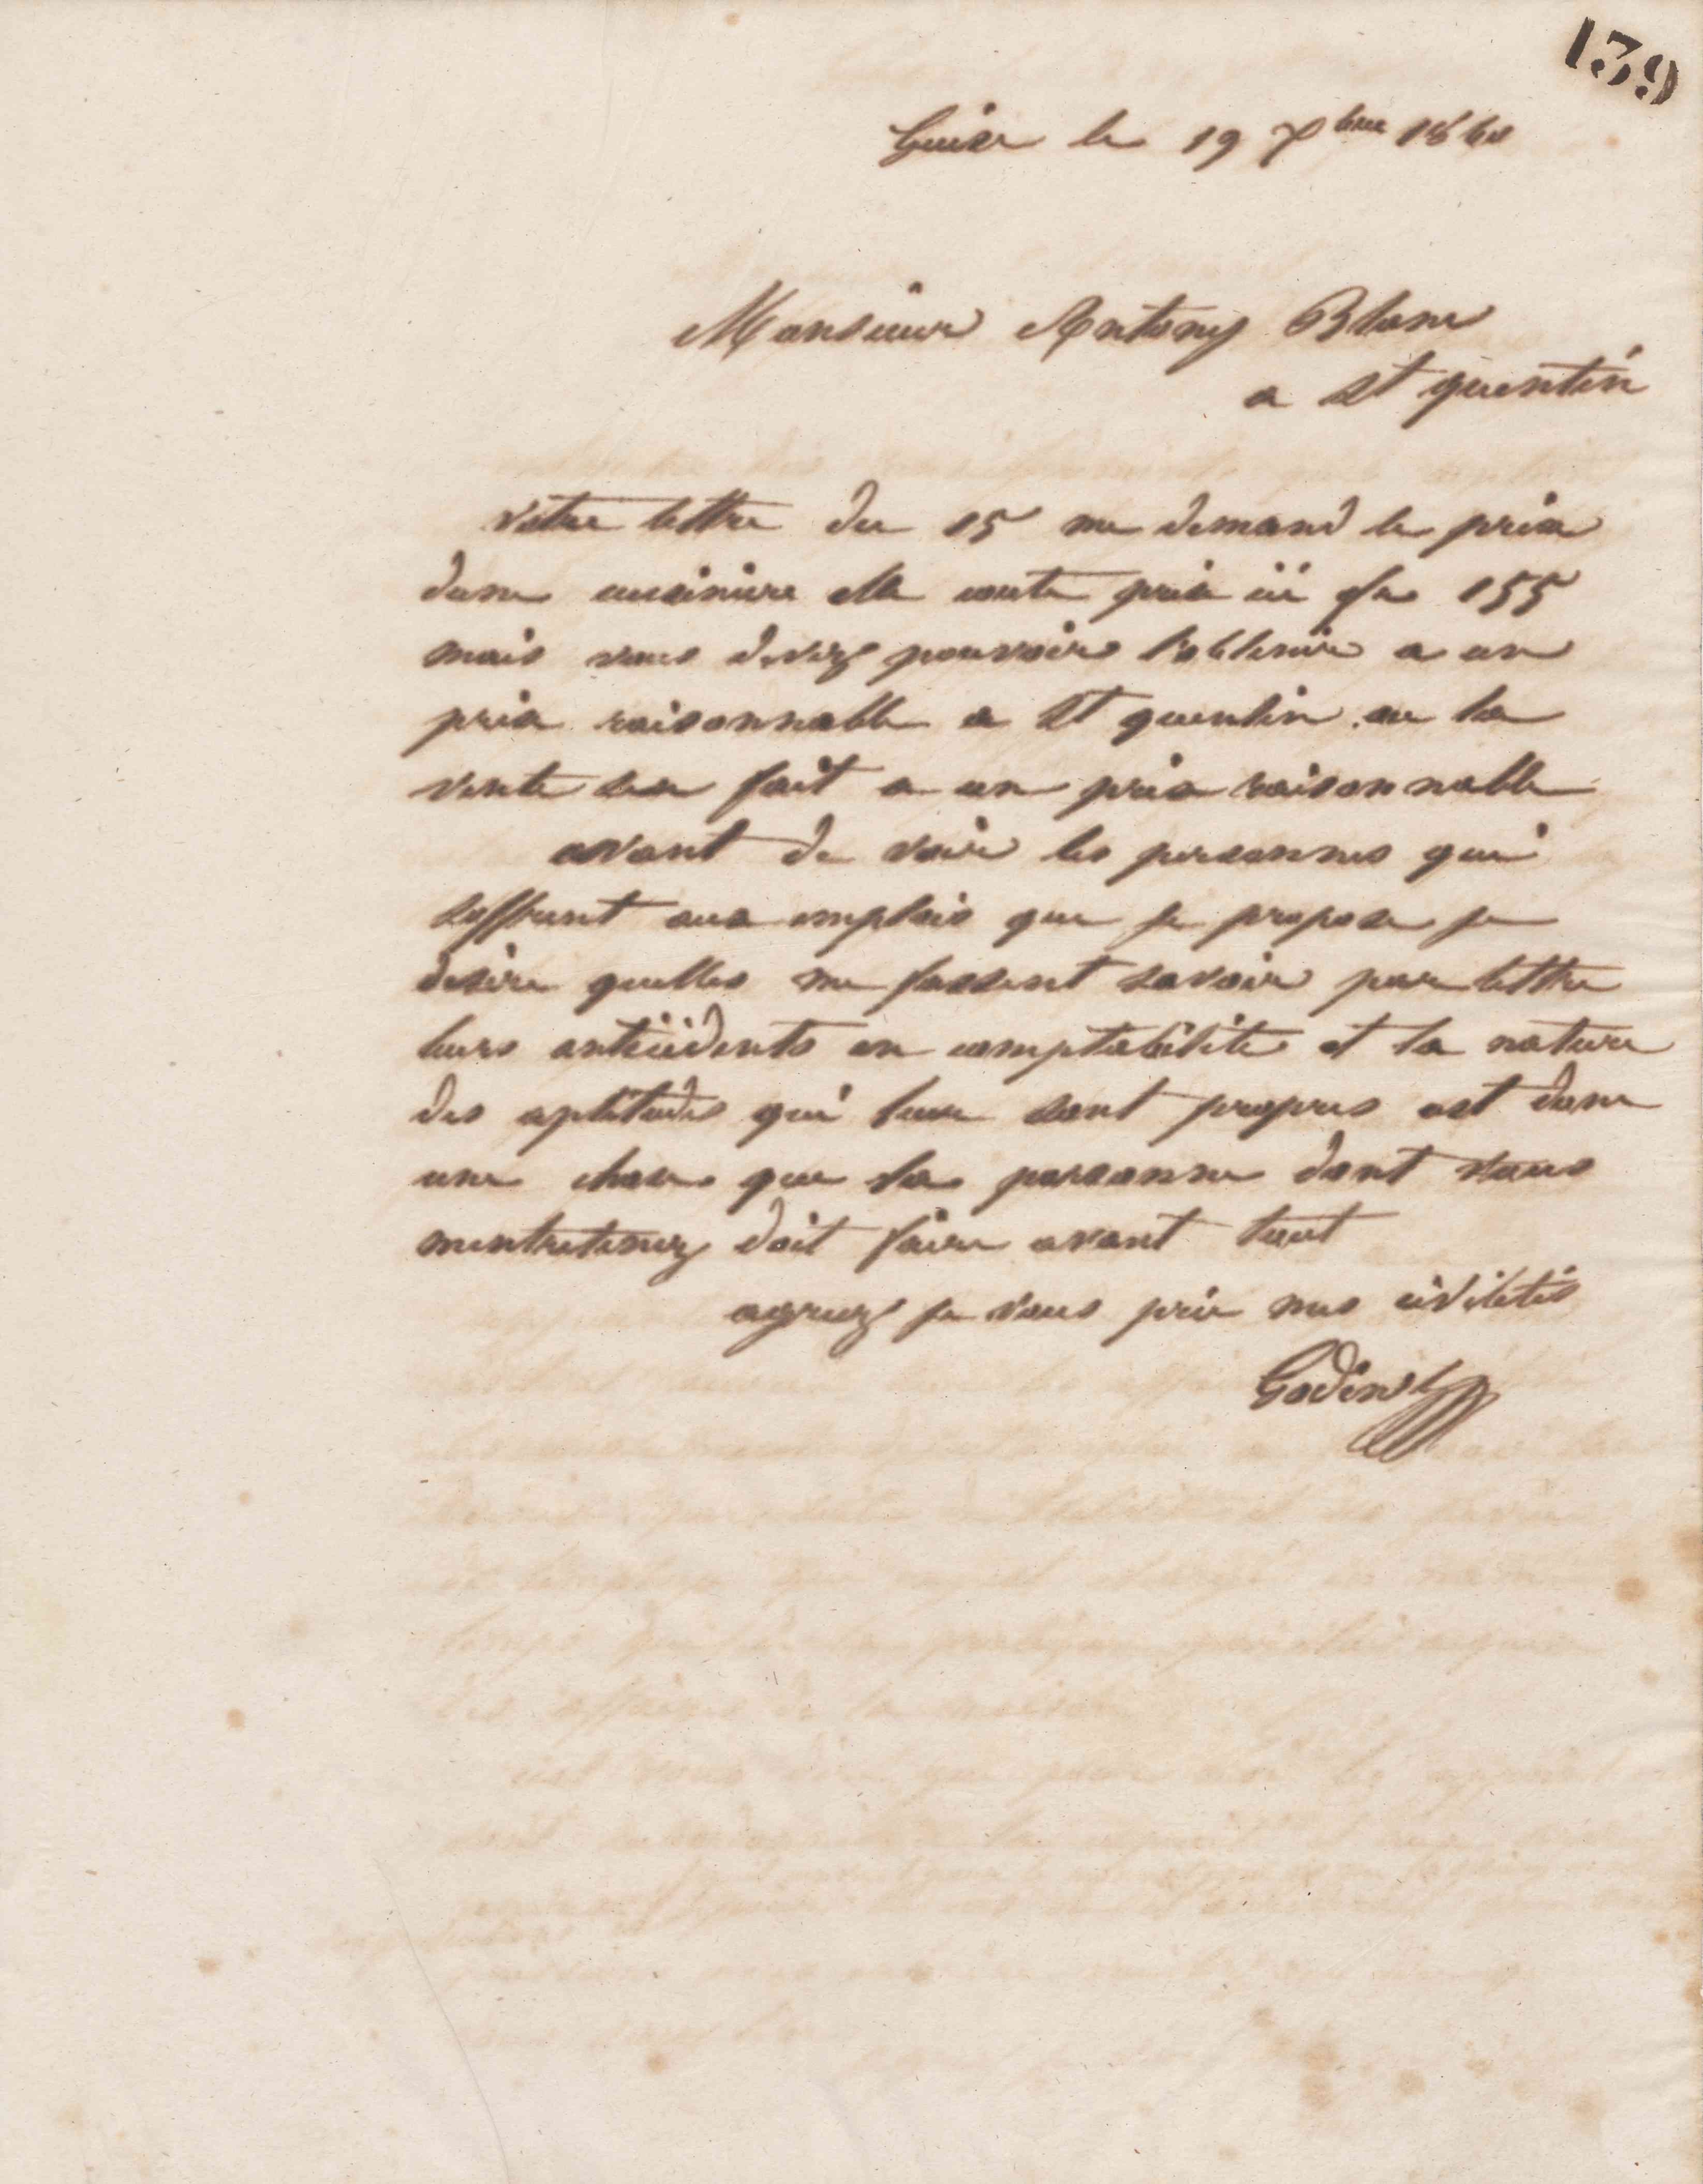 139
Guise le 19 Xbre 1860
Monsieur Antony Blanc
a St quentin
votre lettre du 15 me demand le prix
dune cuisiniere elle coute prix ici fr 155
mais vous devez pouvoir l'obtenir a un
prix raisonnable a St quentin ou la
vente sen fait a un prix raisonnable
avant de voir les personnes qui
soffrent aux emplois que je propose je
desire quelles me fassent savoir par lettre
leurs antécédents en comptabilite et la nature
des aptitudes qui leur sont propres cest donc
une chose que la personne dont vous
mentretenez doit faire avant tout
agreez je vous prie mes civilités
Godin